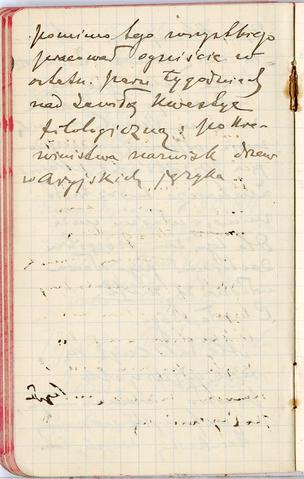 pomimo tego wszystkiego
pracował ogniście w
ostatn. paru tygodniach
nad zawiłą kwestyę
filologiczną: pokre-
wieństwa nazwisk drzew
w aryjskich języka